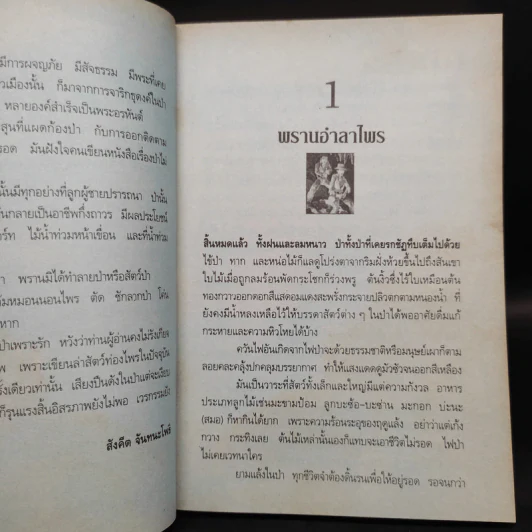 มีการผจญภัย มีสัจธรรม มีพระที่เคย
วเมืองนั้น ก็มาจากการจาริกธุดงค์ในป่า
หลายองค์สำเร็จเป็นพระอรหันต์
สูนที่แผดก้องป่า กับการออกติดตาม
รอด มันฝังใจคนเขียนหนังสือเรื่องป่าไม่
นั้นมีทุกอย่างที่ลูกผู้ชายปรารถนา ป่านั้น
นกลายเป็นอาชีพกึ่งถาวร มีผลประโยชน์
ร์ท ไม้น้ำท่วมหน้าเขื่อน และที่น้ำท่วม
า พรานมิได้ทำลายป่าหรือสัตว์ป่า
ล้มหมอนนอนไพร ตัด ชักลากป่า โค่น
หาก
ป่าเพราะรัก หวังว่าท่านผู้อ่านคงไม่รังเกียจ
พ เพราะเขียนล่าสัตว์ท่องไพรในปัจจุบัน
รั้งเดียวเท่านั้น เสียงปืนดังในป่าแต่จะเงียบ
ก็รุนแรงสิ้นอิสรภาพยังไม่พอ เวรกรรมยัง
สังคีต จันทนะโพธิ
1
พรานอำลาไพร
สิ้นหมดแล้ว ทั้งฝนและลมหนาว ป่าทั้งป่าที่เคยรกชัฏทึบเต็มไปด้วย
ไข้ป่า ทาก และหน่อไม้ก็แลดูโปร่งตาจากริมฝั่งห้วยขึ้นไปถึงสันเขา
ใบไม้เมื่อถูกลมร้อนพัดกระโชกก็ร่วงพรู ต้นงิ้วซึ่งไร้ใบเหมือนต้น
ทองกวาวออกดอกสีแสดอมแดงสะพรั่งกระจายปลิวตกตามหนองน้ำ ที่
ยังคงมีน้ำหลงเหลือไว้ให้บรรดาสัตว์ต่าง ๆ ในป่าได้พออาศัยดื่มแก้
กระหายและความหิวโหยได้บ้าง
ควันไฟอันเกิดจากไฟป่าจะด้วยธรรมชาติหรือมนุษย์เผาก็ตาม
ลอยคละคลุ้งปกคลุมบรรยากาศ ทำให้แสงแดดดูมัวซัวจนออกสีเหลือง
มันเป็นวาระที่สัตว์ทั้งเล็กและใหญ่มีแต่ความกังวล อาหาร
ประเภทลูกไม้เช่นมะขามป้อม ลูกบะซ้อ-บะซ่าน มะกอก บ่ะนะ
(สมอ) ก็หากินได้ยาก เพราะความร้อนระอุของฤดูแล้ง อย่าว่าแต่เก้ง
กวาง กระทิงเลย ต้นไม้เหล่านั้นเองก็แทบจะเอาชีวิตไม่รอด ไฟป่า
ไม่เคยเวทนาใคร
ยามแล้งในป่า ทุกชีวิตจำต้องดิ้นรนเพื่อให้อยู่รอด รอจนกว่า